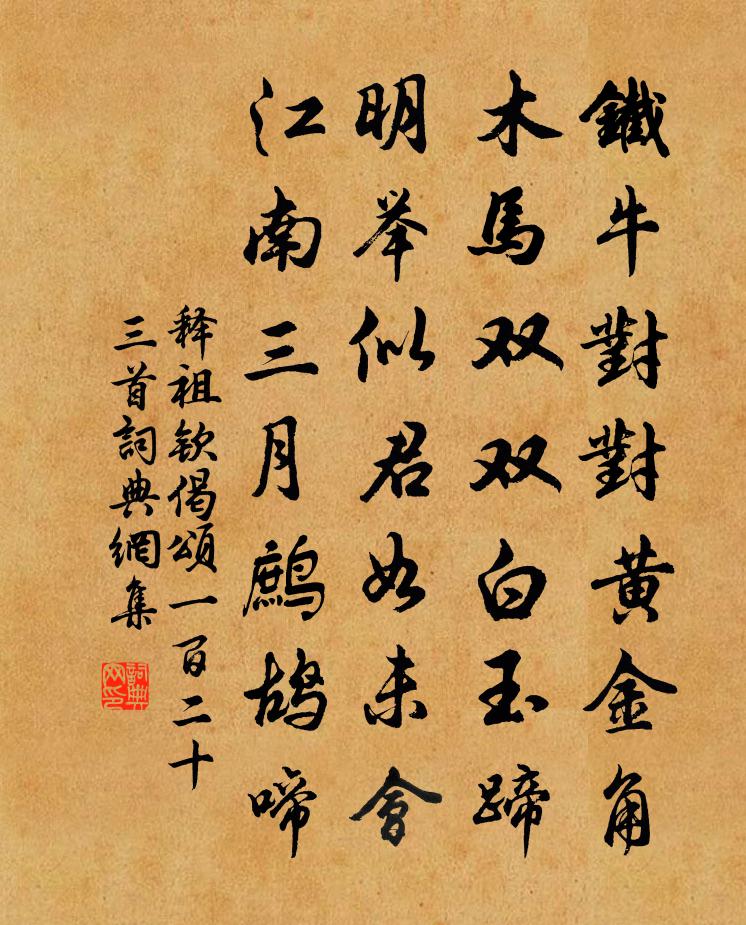 鐵牛對對黄金角
木馬双双白玉蹄
明举似君如未會
江南三月鷓鴣啼
释祖钦偈頌一百二十
三首詞典網集
詞典
网印